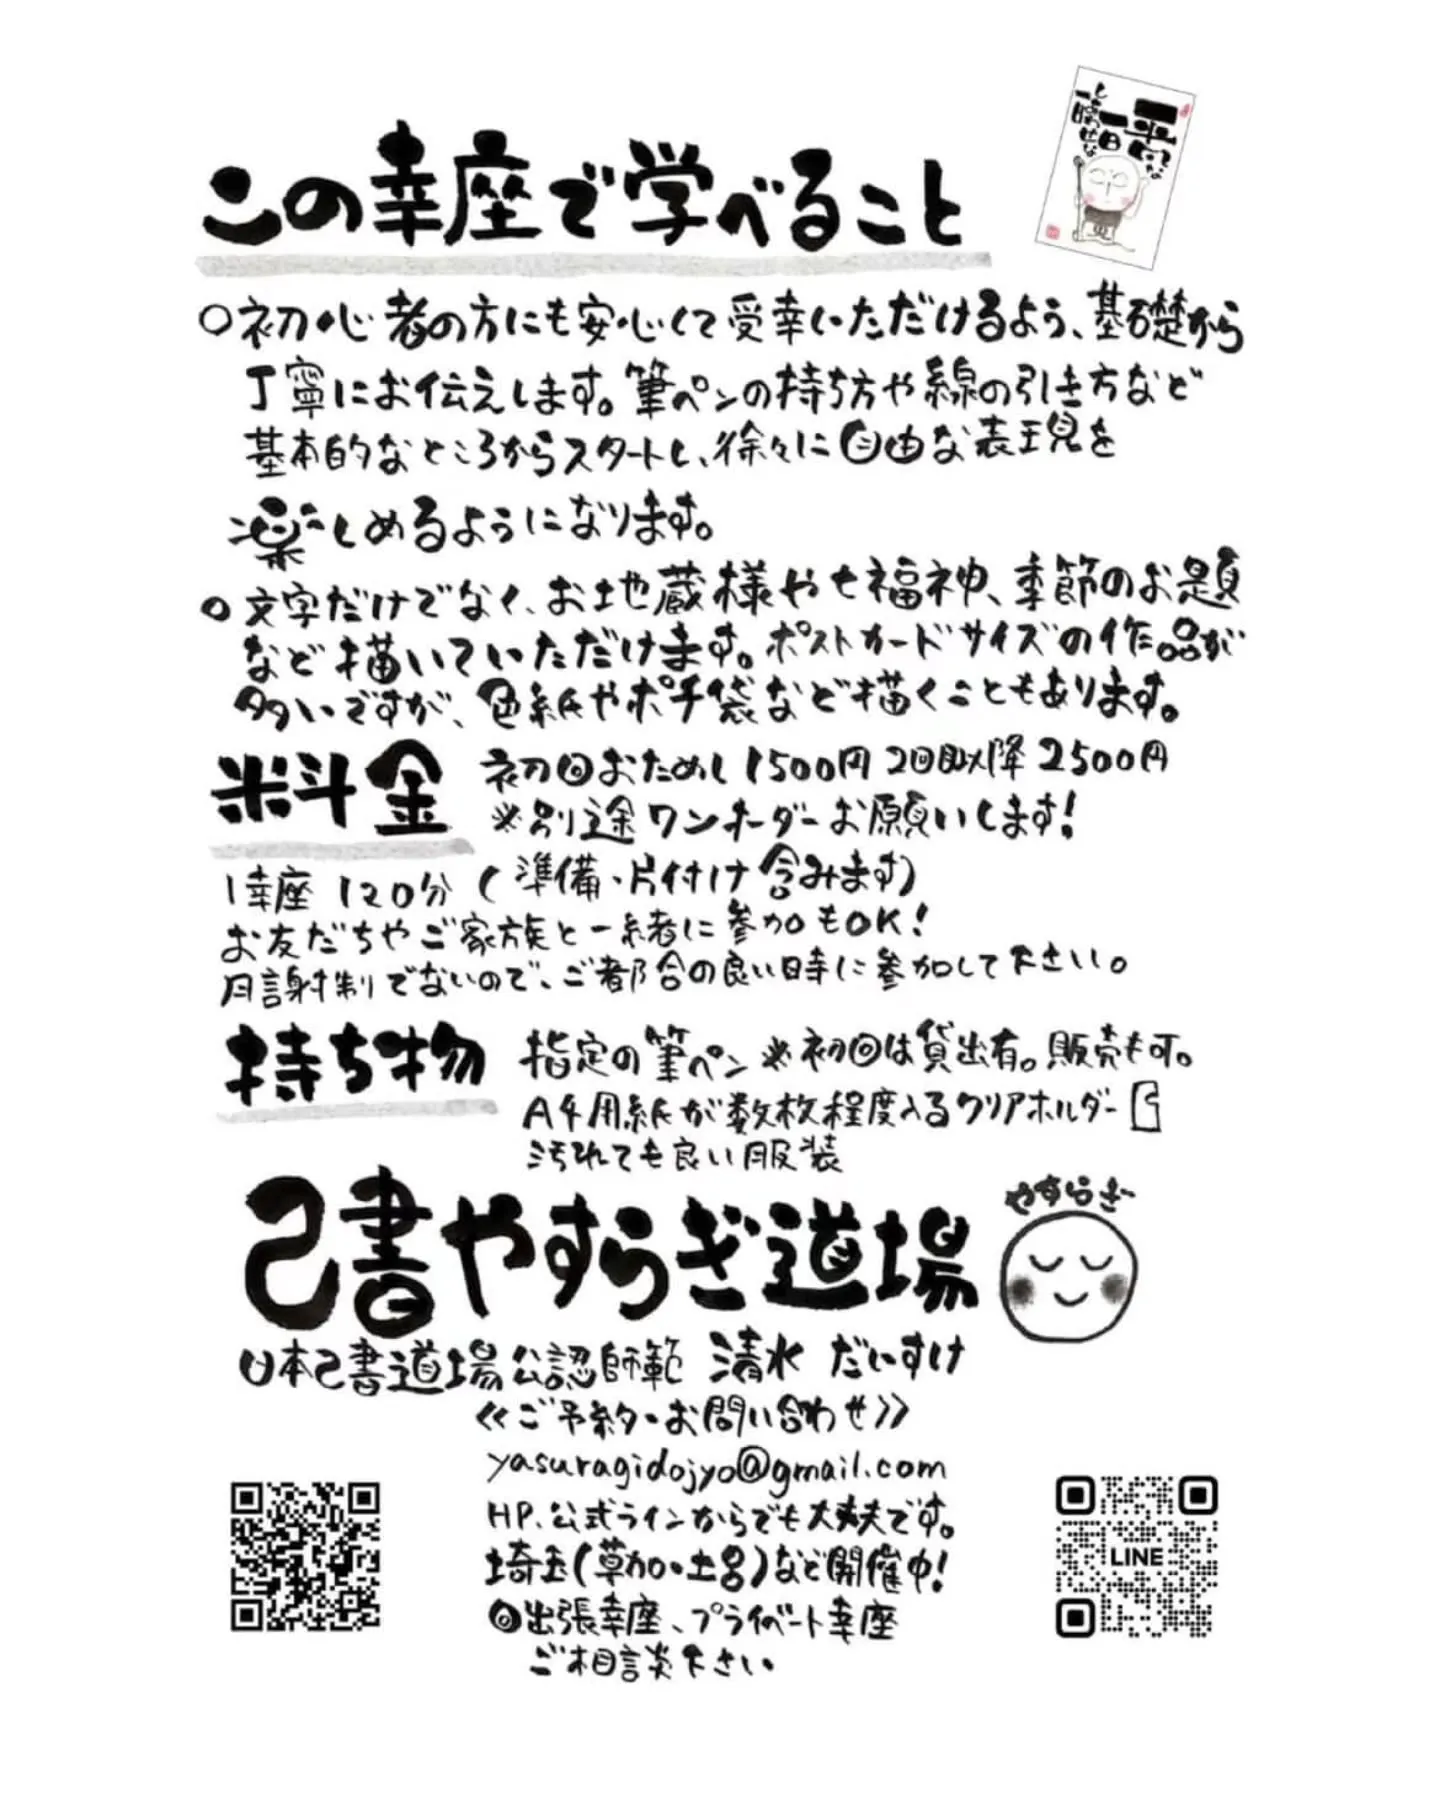 この幸座で学べること
○初心者の方にも安心して受幸いただけるよう、基礎から
丁寧にお伝えします。筆ペンの持ち方や線の引き方など
基本的なところからスタートし、徐々に自由な表現を
楽しめるようになります。
○文字だけでなく、お地蔵様や七福神、季節のお題
など描いていただけます。ポストカードサイズの作品が
多いですが、色紙やポチ袋など描くこともあります。
料金 初回おためし1500円 2回目以降2500円
※別途ワンオーダーお願いします!
1幸座 120分 (準備・片付け含みます)
お友だちやご家族と一緒に参加もOK!
月謝制でないので、ご都合の良い時に参加して下さい。
持ち物 指定の筆ペン ※初回は貸出有。販売も可。
A4用紙が数枚程度入るクリアホルダー
汚れても良い服装
己書やすらぎ道場
やすらぎ
日本己書道場公認師範 清水 だいすけ
《ご予約・お問い合わせ》
yasuragidojyo@gmail.com
HP、公式ラインからでも大丈夫です。
LINE
埼玉(草加・土呂)など開催中!
◎出張幸座、プライベート幸座
ご相談下さい